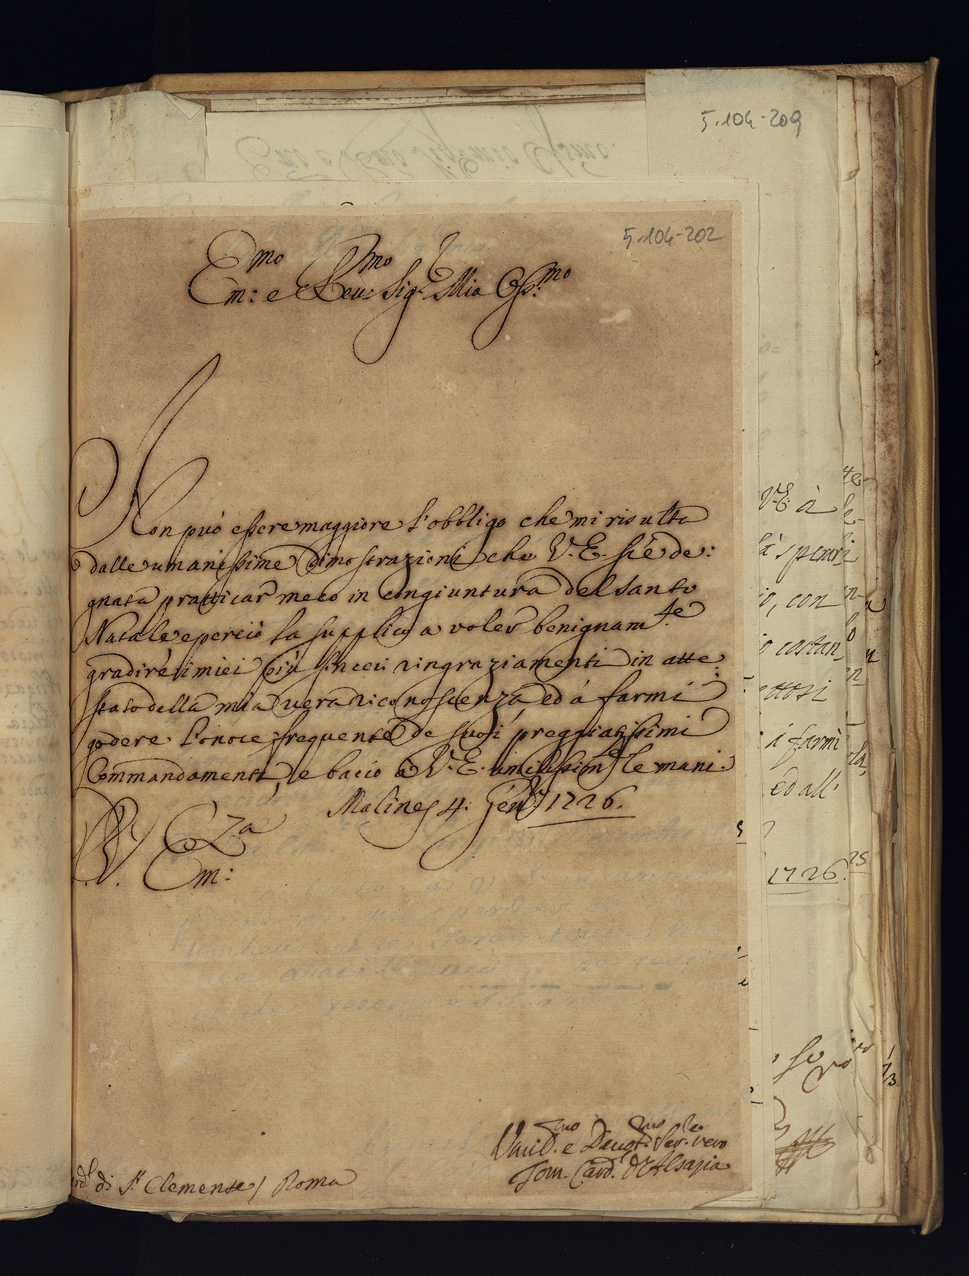 5.104-209
5.104-202
Em:mo e Reu:mo Sig.r Mio Oss.mo
Non può essere maggiore l'obbligo che mi risulta
dalle umanissime dimostrazioni che V.E. si è de:
gnata pratticar meco in congiuntura del santo
Natale e perciò la supplico a voler benignam.te
gradire i miei più sinceri ringraziamenti in atte:
stato della mia vera riconoscenza ed à farmi
godere l'onore frequente de suoi pregiatissimi
Commandamenti, e bacio à V.E. umilissim.te le mani.
Malines 4: Gen.ro 1726.
V. Em:za
di S. Clemente / Roma
e Deuot.mo Ser. vero
Tom. Card. d'Alsazia
V.E. à
io, con
costan
à farmi
ed all'
1726.